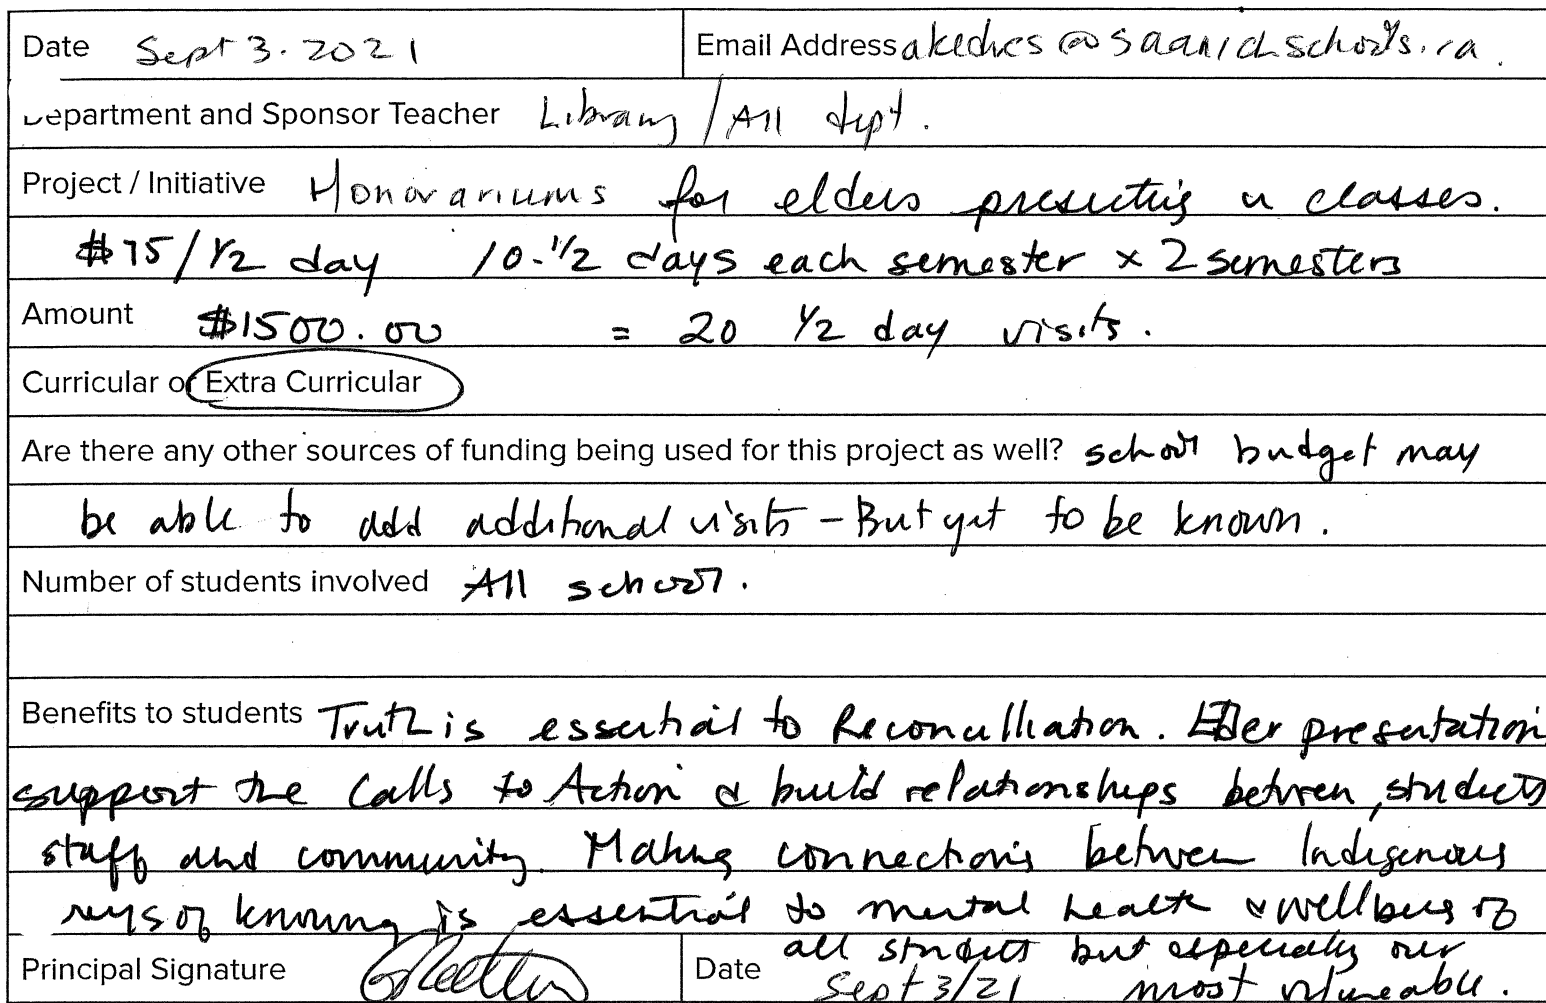 Date Sept 3. 2021 Email Address akedves@saanichschools.ca.
Department and Sponsor Teacher Library / All dept.
Project / Initiative Honorariums for elders presenting in classes.
$75/1/2 day 10-1/2 days each semester x 2 semesters
Amount $1500.00 = 20 1/2 day visits.
Curricular or Extra Curricular
Are there any other sources of funding being used for this project as well? school budget may
be able to add additional visits - But yet to be known.
Number of students involved All school.
Benefits to students Truth is essential to Reconcilliation. Elder presentation
support the Calls to Action & build relationships between, students
staff and community. Making connections between Indigenous
ways of knowing is essential to mental health & wellbeing of
all students but especially our
most vulnerable.
Principal Signature Date Sept 3/21